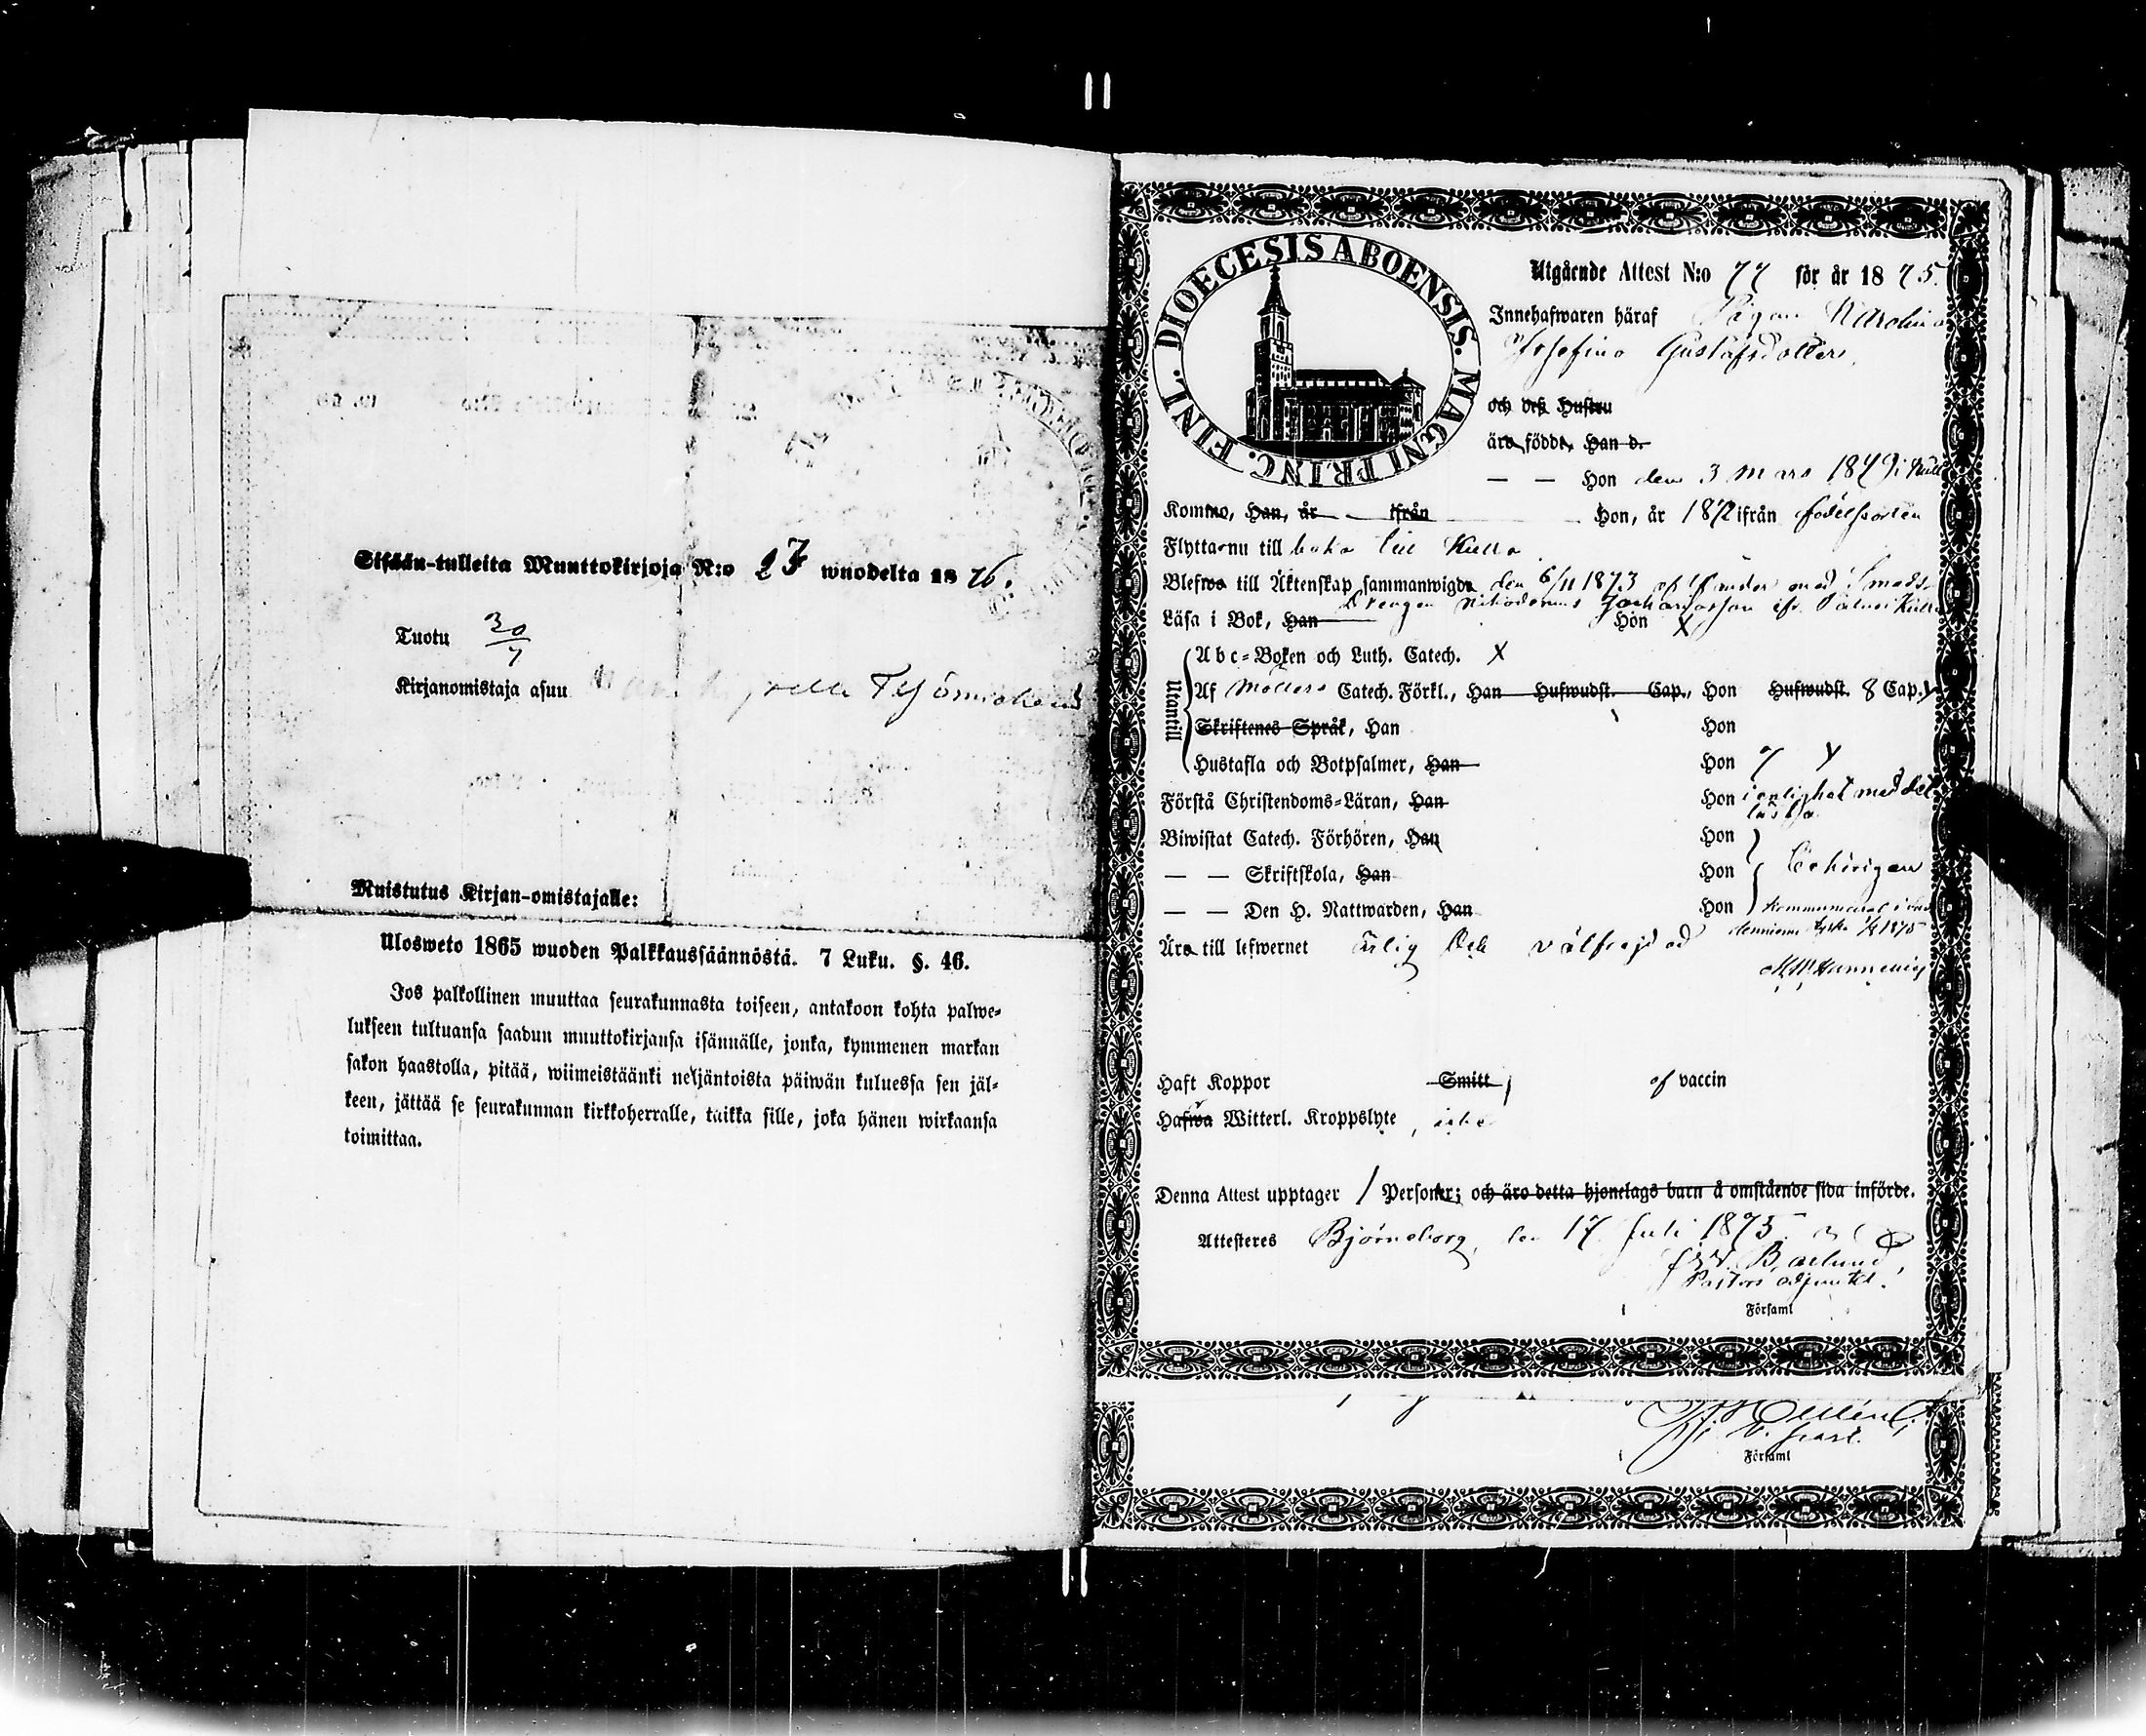 Sisään-tulleita Muuttokirjoja N:o 27 wuodelta 1876.
Tuotu 30/7
Kirjanomistaja asuu
Muistutus Kirjan-omistajalle:
Ulosweto 1865 wuoden Palkkaussäännöstä. 7 Luku. §. 46.
Jos palkollinen muuttaa seurakunnasta toiseen, antakoon kohta palwe-
lukseen tultuansa saadun muuttokirjansa isännälle, jonka, kymmenen markan
sakon haastolla, pitää, wiimeistäänki neljäntoista päiwän kuluessa sen jäl-
keen, jättää se seurakunnan kirkkoherralle, taikka sille, joka hänen wirkaansa
toimittaa.
DIOECESIS ABOENSIS. MAGNI PRINC. FINL.
Utgående Attest N:o 77 för år 1875.
Innehafwaren häraf Pigan Karolina
Josefina Gustafsdotter
och dess Hustru
äro födde, Han d.
— — Hon den 3 Mars 1849 i Kull
Komne, Han, år ifrån Hon, år 1872 ifrån födelseorten
Flyttar nu till baka till Kulla
Blefwo till Äktenskap sammanwigde den 6/11 1873 med Smeds-
drengen Nikodemus
Läsa i Bok, Han Hon X
Utantill
Abc-Boken och Luth. Catech. X
Af Möllers Catech. Förkl., Han Hufwudst. Cap., Hon Hufwudst. 8 Cap. y
Skriftenes Språk, Han Hon
Hustafla och Botpsalmer, Han Hon y y
Förstå Christendoms-Läran, Han Hon i enlighet med det
lästa.
Biwistat Catech. Förhören, Han Hon
— — Skriftskola, Han Hon behörigen
— — Den H. Nattwarden, Han Hon
Äro till lefwernet ärlig och välfrejdad
Haft Koppor Smitt, af vaccin
Hafwa Witterl. Kroppslyte, icke
Denna Attest upptager 1 Personer; och äro detta hjonelags barn å omstående sida införde.
Attesteres Björneborg, den 17 Juli 1875
Pastors adjunkt.
i Församl
i Församl